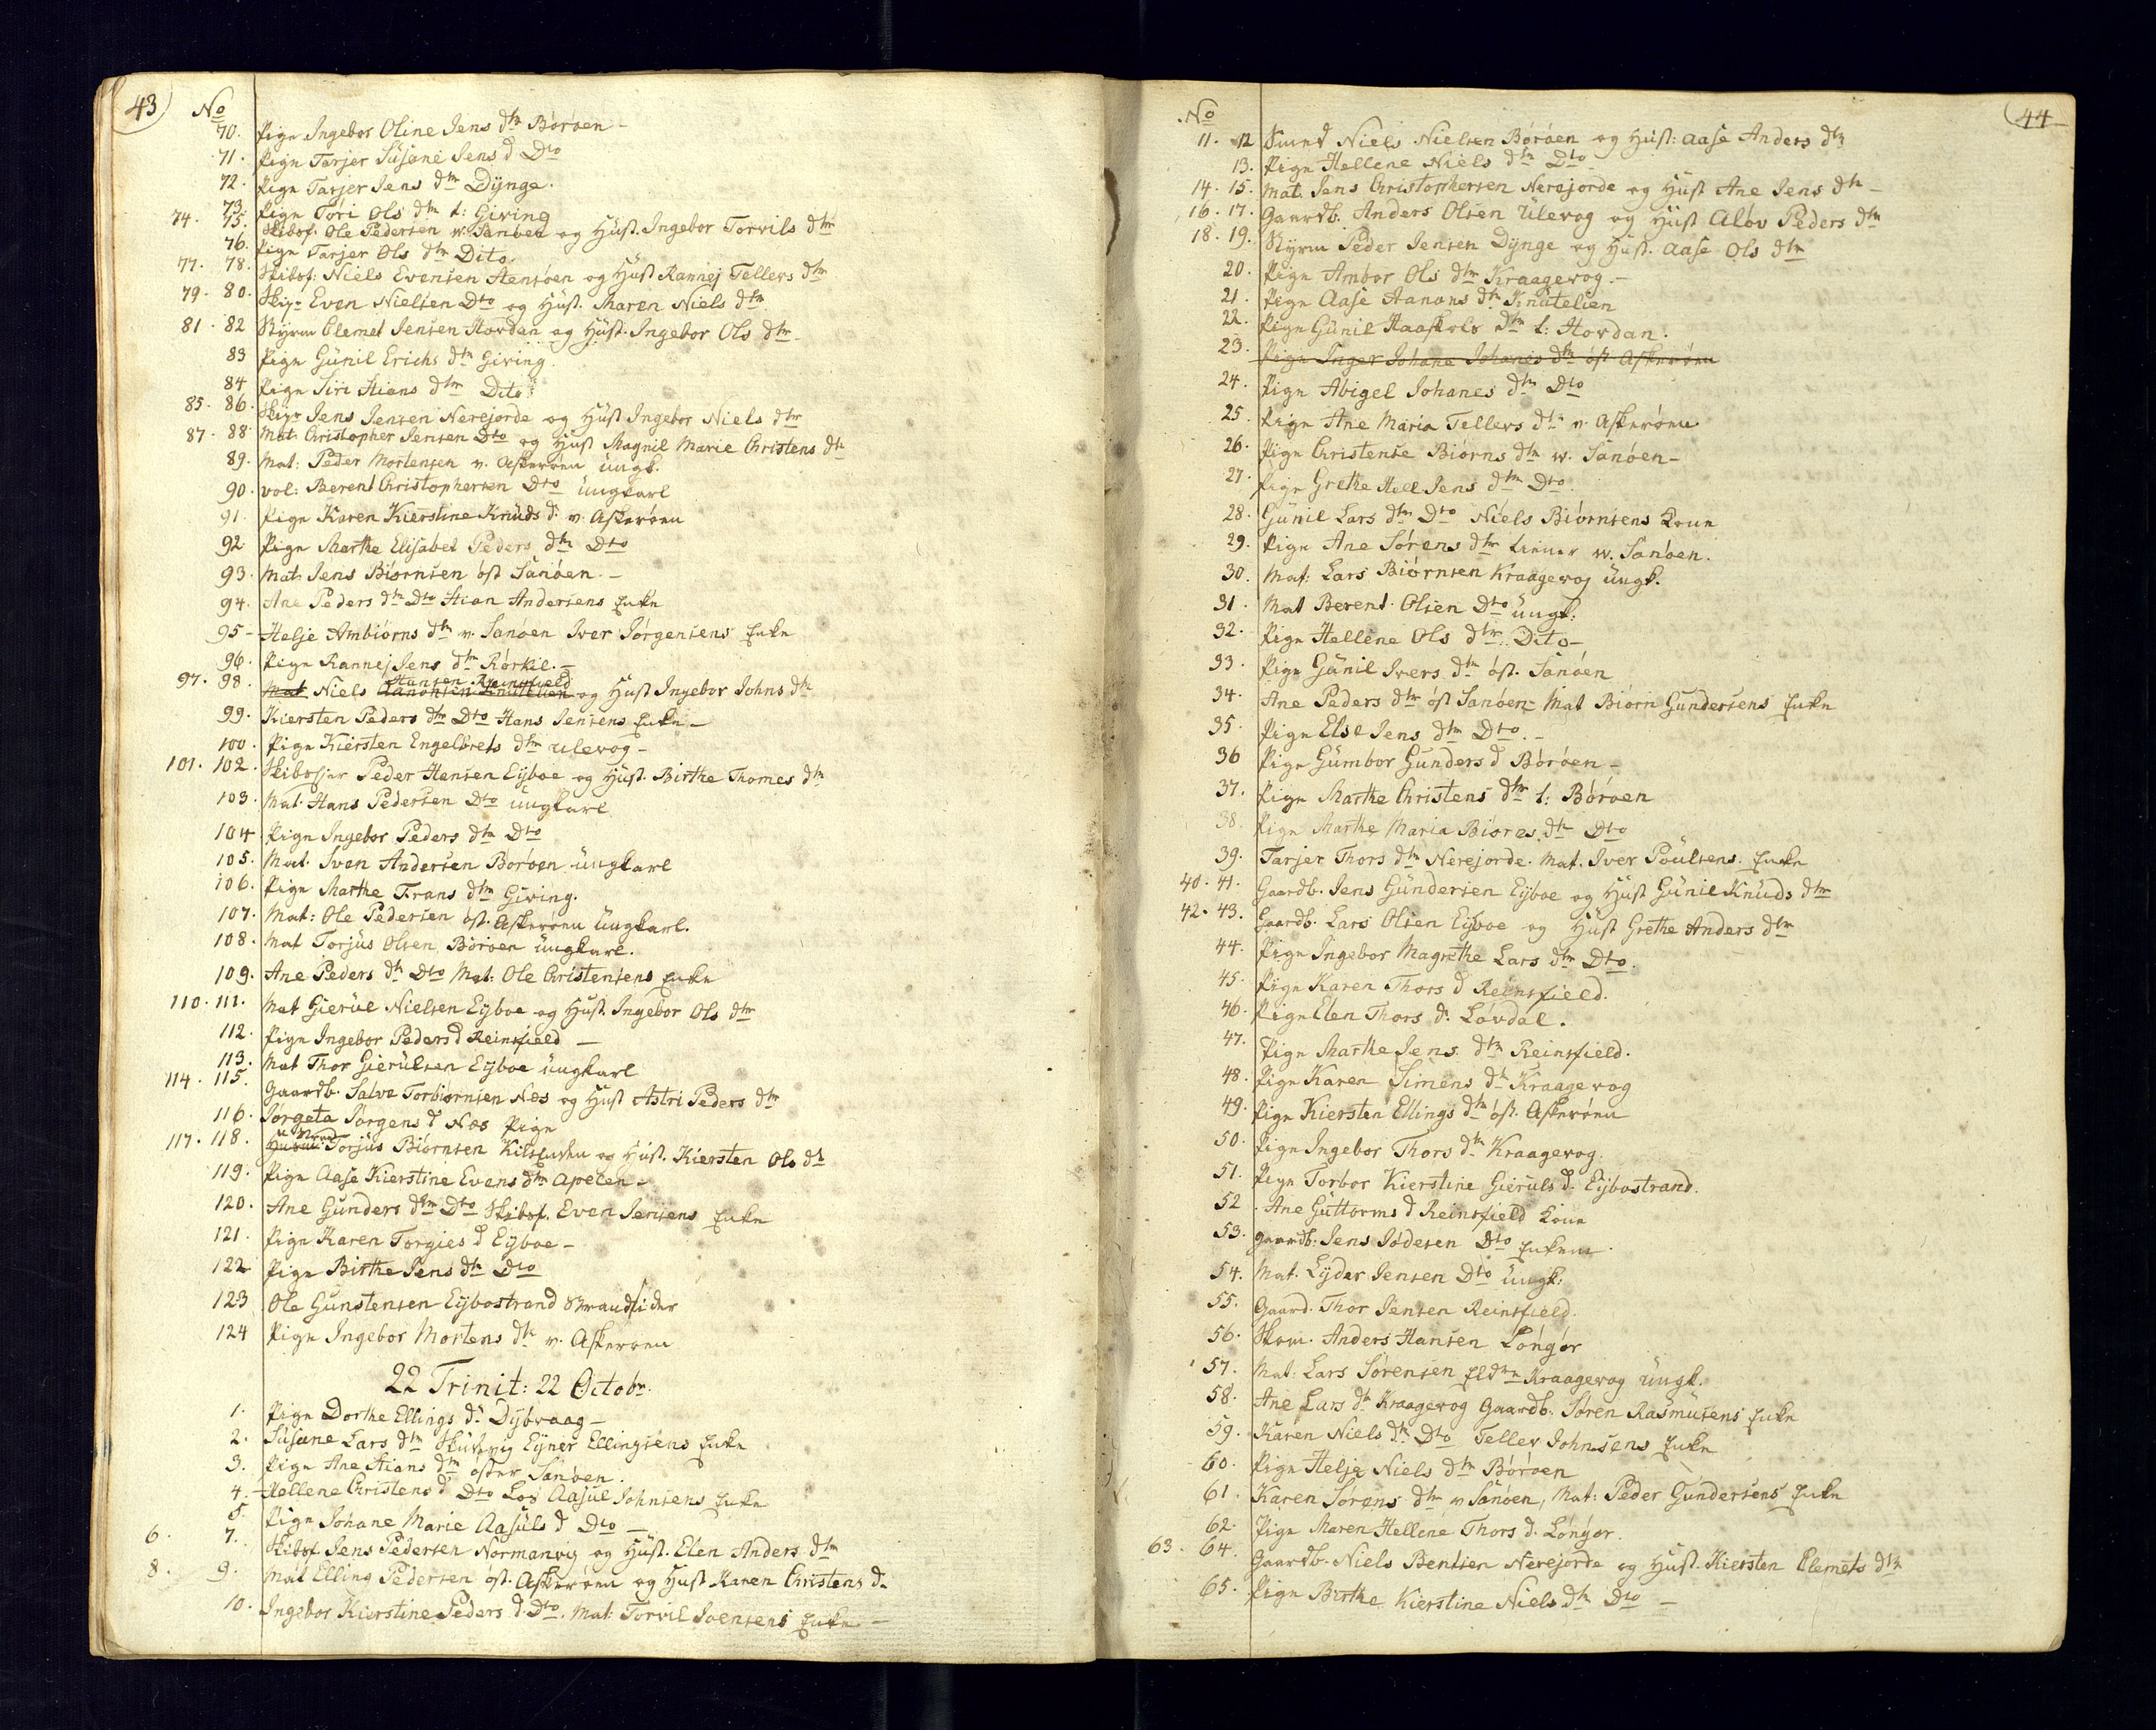 43
No
70. Pige Ingebor Oline Jens dtr Börøen -
71. Pige Tarjer Susane Jens d Dto
72. Pige Tarjer Jens dtr Dÿnge.
73. Pige Töri Ols dtr l: Giving
74. 75. Skibsf. Ole Pedersen w. Sanöen og Hust. Ingebor Torvils dtr
76. Pige Tarjer Ols dtr Dito.
77. 78. Skibsf. Niels Evensen Stensöen og Hust Rannej Tellevs dtr
79. 80. Skipr Even Nielsen Dto og Hust. Maren Niels dtr
81. 82 Styrm Clemet Jensen Hovdan og Hust. Ingebor Ols dtr
83 Pige Günil Erichs dtr Giving
84 Pige Siri Stians dtr Dito
85. 86. Skipr Jens Jensen Nerejorde og Hust Ingebor Niels dtr
87. 88. Mat: Christopher Jensen Dto og Hust Magnil Marie Christens dtr
89. Mat: Peder Mortensen v. Askerøen üngk.
90. vol: Berent Christophersen Dto üngkarl
91. Pige Karen Kierstine Knüds d. v. Askerøen
92 Pige Marthe Elisabet Peders dtr Dto
93. Mat. Jens Biørnsen öst Sanöen. -
94. Ane Peders dtr Dto Stian Andersens Enke
95 - Helje Ambiørns dtr v. Sanöen Iver Jörgensens Enke
96. Pige Rannej Jens dtr Rørkil. -
Hansen Reinsfield
97. 98. Mat Niels Aanonsen Knutelien og Hust Ingebor Johns dtr
99. Kiersten Peders dtr Dto Hans Jensens Enke -
100. Pige Kiersten Engelbrets dtr ulevog -
101. 102. Skibsfør Peder Hansen Eÿboe og Hust. Birthe Thomes dtr
103. Mat. Hans Pedersen Dto üngkarl
104. Pige Ingebor Peders dtr Dto
105. Mat. Iven Andersen Borøen üngkarl
106. Pige Marthe Frans dtr Giving.
107. Mat: Ole Pedersen öst. Askerøen üngkarl.
108. Mat Torjüs Olsen Börøen üngkarl.
109. Ane Peders dtr Dto Mat: Ole Christensens Enke
110. 111. Mat Gierül Nielsen Eÿboe og Hust. Ingebor Ols dtr
112. Pige Ingebor Peders d Reinsfield -
113. Mat Thor Gierülsen Eÿboe üngkarl
114. 115. Gaardb. Salve Torbiørnsen Næs og Hust Astri Peders dtr
116. Jorgeta Jørgens d Næs Pige
117. 118. Torjüs Biörnsen Kilsenden og Hust. Kiersten Ols dtr
119. Pige Aase Kierstine Evens dtr Apelen -
120. Ane Günders dtr Dto Skibsf. Even Jensens Enke
121. Pige Karen Torgies d Eÿboe -
122 Pige Birthe Jens dtr Dto
123 Ole Gunstensen Eÿbostrand Strandsider
124 Pige Ingebor Mortens dtr v. Askerøen
22 Trinit: 22 Octobr.
1. Pige Dorthe Ellings d. Dÿbvaag -
2. Süsane Lars dtr Skütvig Ejner Ellingsens Enke
3. Pige Ane Stians dtr öster Sanöen.
4. - Hellene Christens d Dto Los Aasül Johnsens Enke
5. Pige Johane Marie Aasüls d Dto -
6. 7. Skibsf Jens Pedersen Normanvig og Hust. Elen Anders dtr
8. 9. Mat Elling Pedersen öst. Askerøen og Hust Karen Christens d.
10. Ingebor Kierstine Peders d. Dto. Mat: Torvil Ivensens Enke -
44
No
11. 12 Smed Niels Nielsen Börøen og Hust: Aase Anders dtr
13. Pige Hellene Niels dtr Dto
14. 15. Mat. Jens Christophersen Nerejorde og Hust Ane Jens dtr -
16. 17. Gaardb. Anders Olsen ülevog og Hust Alöv Peders dtr
18. 19. Styrm Peder Jensen Dÿnge og Hust. Aase Ols dtr
20. Pige Ambor Ols dtr Kraagevog. -
21. Pige Aase Aanons dtr Knütelien
22. Pige Günil Haaskols dtr l: Hovdan.
23. Pige Inger Johane Johanes dtr öst Askerøen
24. Pige Abigel Johanes dtr Dto
25. Pige Ane Maria Tellevs dtr v. Askerøen
26. Pige Christense Biørns dtr w. Sanöen -
27. Pige Grethe Hell Jens dtr Dto.
28. Günil Lars dtr Dto Niels Biörnsens Kone
29. Pige Ane Sörens dtr tiener w. Sanöen.
30. Mat: Lars Biørnsen Kraagevog üngk.
31. Mat Berent. Olsen Dto üngk:
32. Pige Hellene Ols dtr. Dito -
33. Pige Günil Ivers dtr öst. Sanöen
34. Ane Peders dtr öst Sanöen - Mat Biørn Gundersens Enke
35. Pige Else Jens dtr Dto. -
36 Pige Gümbor Günders d Börøen -
37. Pige Marthe Christens dtr l: Börøen
38. Pige Marthe Maria Biöres dtr Dto
39. Tarjer Thors dtr Nerejorde. Mat. Iver Poülsens. Enke
40. 41. Gaardb. Jens Gündersen Eÿboe og Hust Günil Knüds dtr
42. 43. Gaardb. Lars Olsen Eÿboe og Hust Grethe Anders dtr
44. Pige Ingebor Magrethe Lars dtr Dto.
45. Pige Karen Thors d Reinsfield.
46. Pige Elen Thors d. Lövdal.
47. Pige Marthe Jens dtr Reinsfield.
48. Pige Karen Simens dtr Kraagevog
49. Pige Kiersten Ellings dtr öst. Askerøen
50. Pige Ingebor Thors dtr Kraagevog.
51. Pige Torbor Kierstine Gierüls d. Eÿbostrand.
52. Ane Güttorms d Reinsfield Kone
53. Gaardb: Jens Jödesen Dto Enkem.
54. Mat. Lÿder Jensen Dto üngk:
55. Gaard. Thor Jensen Reinsfield.
56. Skom. Anders Hansen Löngør
57. Mat: Lars Sørensen Eldtr Kraagevog üngk.
58. Ane Lars dtr Kraagevog Gaardb. Søren Rasmusens Enke
59. Karen Niels dtr Dto Tellev Johnsens Enke
60. Pige Helje Niels dtr Börøen
61. Karen Sörens dtr v Sanöen, Mat: Peder Gundersens Enke
62. Pige Maren Hellene Thors d. Löngør.
63. 64. Gaardb. Niels Bentsen Nerejorde og Hust. Kiersten Clemets dtr
65. Pige Birthe Kierstine Niels dtr Dto -